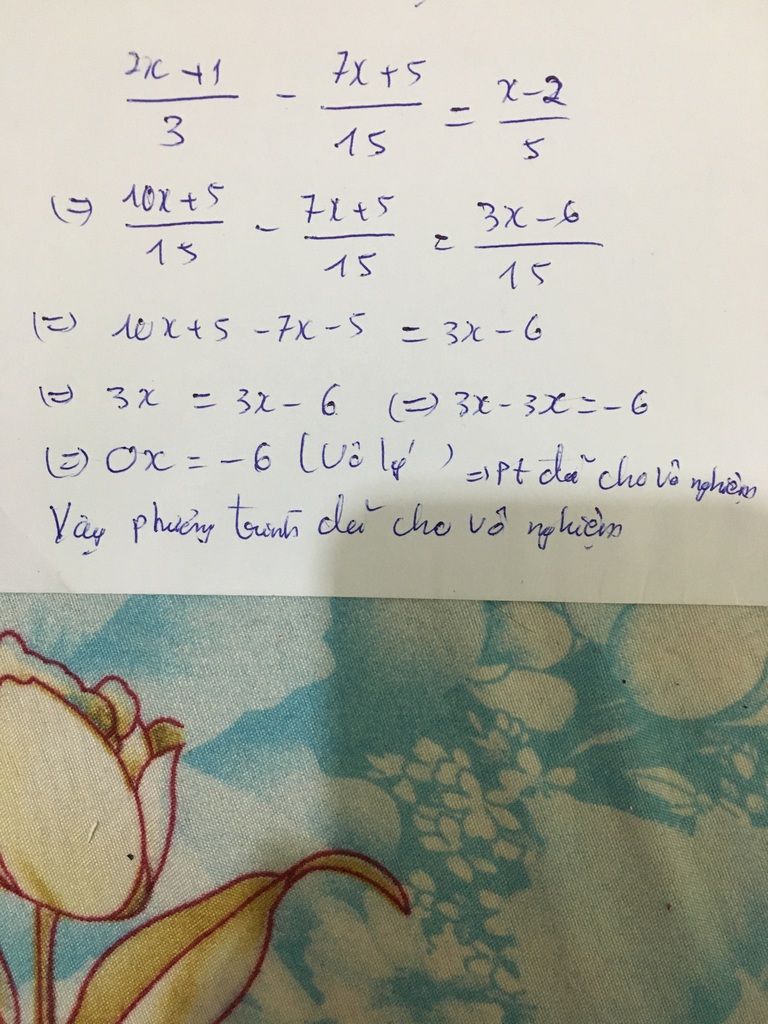 2x+1/3 - 7x+5/15 = x-2/5
(=) 10x+5/15 - 7x+5/15 = 3x-6/15
(=) 10x+5-7x-5 = 3x-6
(=) 3x = 3x-6 (=) 3x-3x=-6
(=) 0x = -6 (Vô lý) => pt đã cho vô nghiệm
Vậy phương trình đã cho vô nghiệm